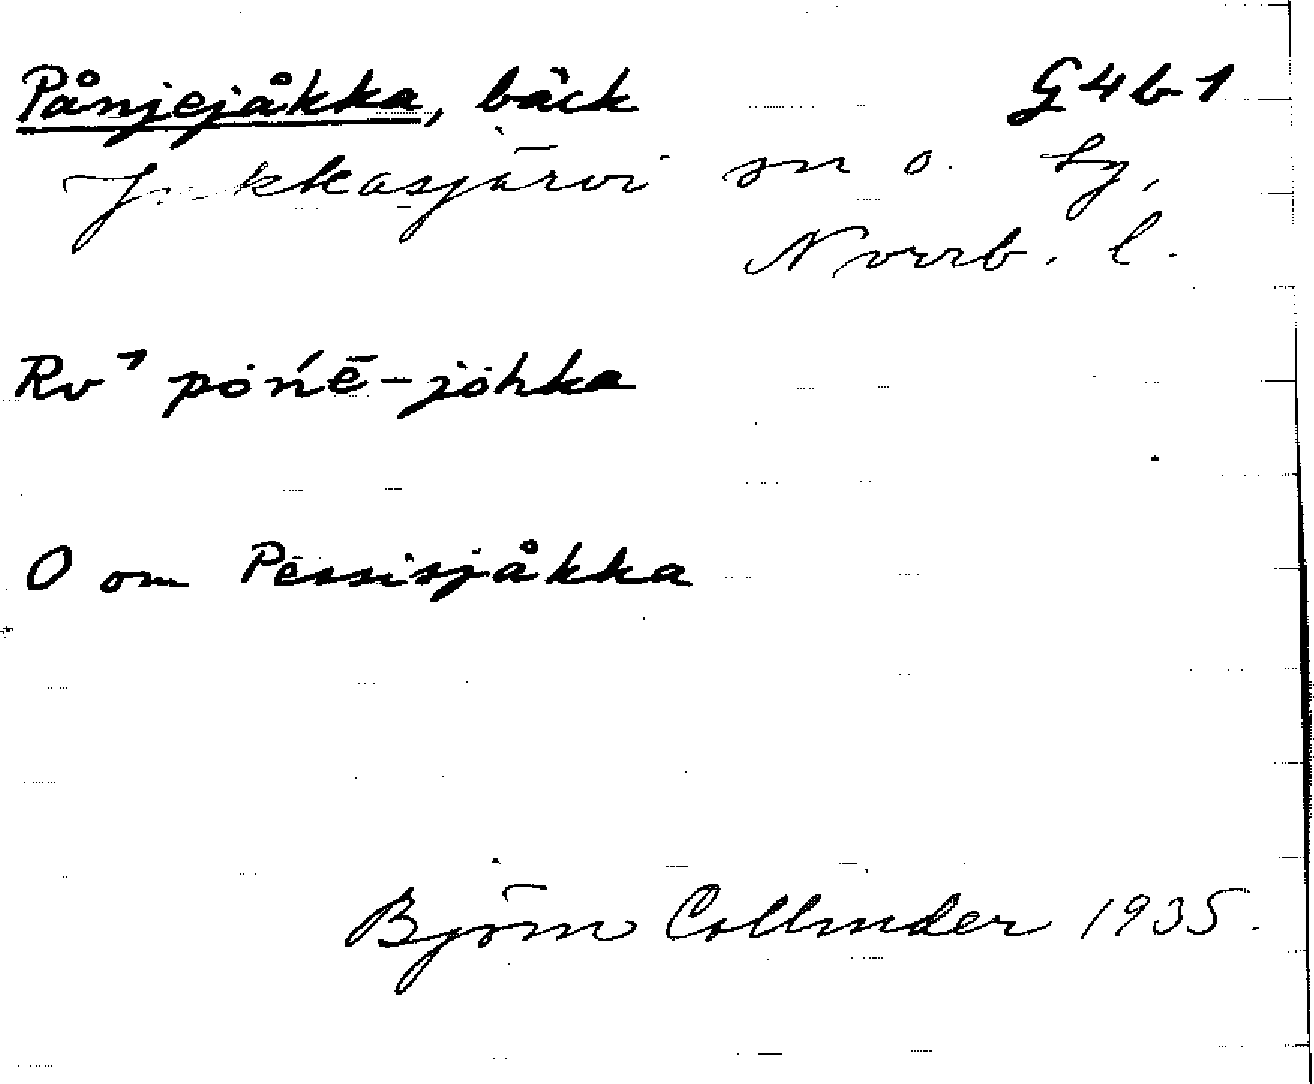 Pånjejåkka, bäck G4b1
Jukkasjärvi sn o. lg,
Norrb. l.
Rv¹ pòńē-jòhka
O om Pessisjåkka
Björn Collinder 1935.